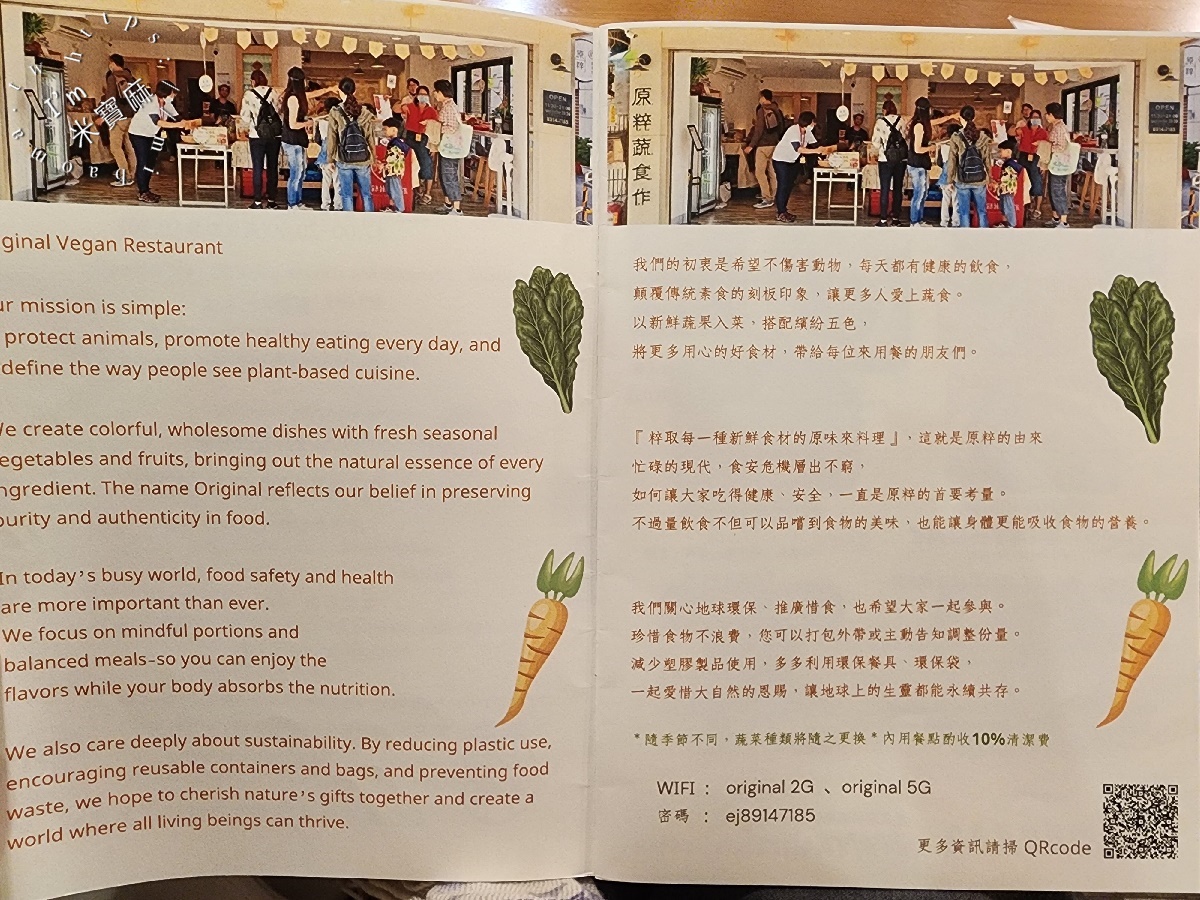 米寶麻
ginal Vegan Restaurant
ur mission is simple:
protect animals, promote healthy eating every day, and
define the way people see plant-based cuisine.
We create colorful, wholesome dishes with fresh seasonal
egetables and fruits, bringing out the natural essence of every
ngredient. The name Original reflects our belief in preserving
purity and authenticity in food.
In today's busy world, food safety and health
are more important than ever.
We focus on mindful portions and
balanced meals-so you can enjoy the
flavors while your body absorbs the nutrition.
We also care deeply about sustainability. By reducing plastic use,
encouraging reusable containers and bags, and preventing food
waste, we hope to cherish nature's gifts together and create a
world where all living beings can thrive.
OPEN
原粹蔬食作
OPEN
我們的初衷是希望不傷害動物，每天都有健康的飲食，
顛覆傳統素食的刻板印象、讓更多人愛上蔬食。
以新鮮蔬果入菜，搭配繽紛五色，
將更多用心的好食材，帶給每位來用餐的朋友們。
『粹取每一種新鮮食材的原味來料理』，這就是原粹的由來
忙碌的現代，食安危機層出不窮，
如何讓大家吃得健康、安全，一直是原粹的首要考量。
不過量飲食不但可以品嚐到食物的美味，也能讓身體更能吸收食物的營養。
我們關心地球環保、推廣惜食，也希望大家一起參與。
珍惜食物不浪費，您可以打包外帶或主動告知調整份量。
減少塑膠製品使用，多多利用環保餐具、環保袋，
一起愛惜大自然的恩賜，讓地球上的生靈都能永續共存。
*隨季節不同，蔬菜種類將隨之更換*內用餐點酌收10%清潔費
WIFI： original 2G 、original 5G
密碼 ： ej89147185
更多資訊請掃 QRcode